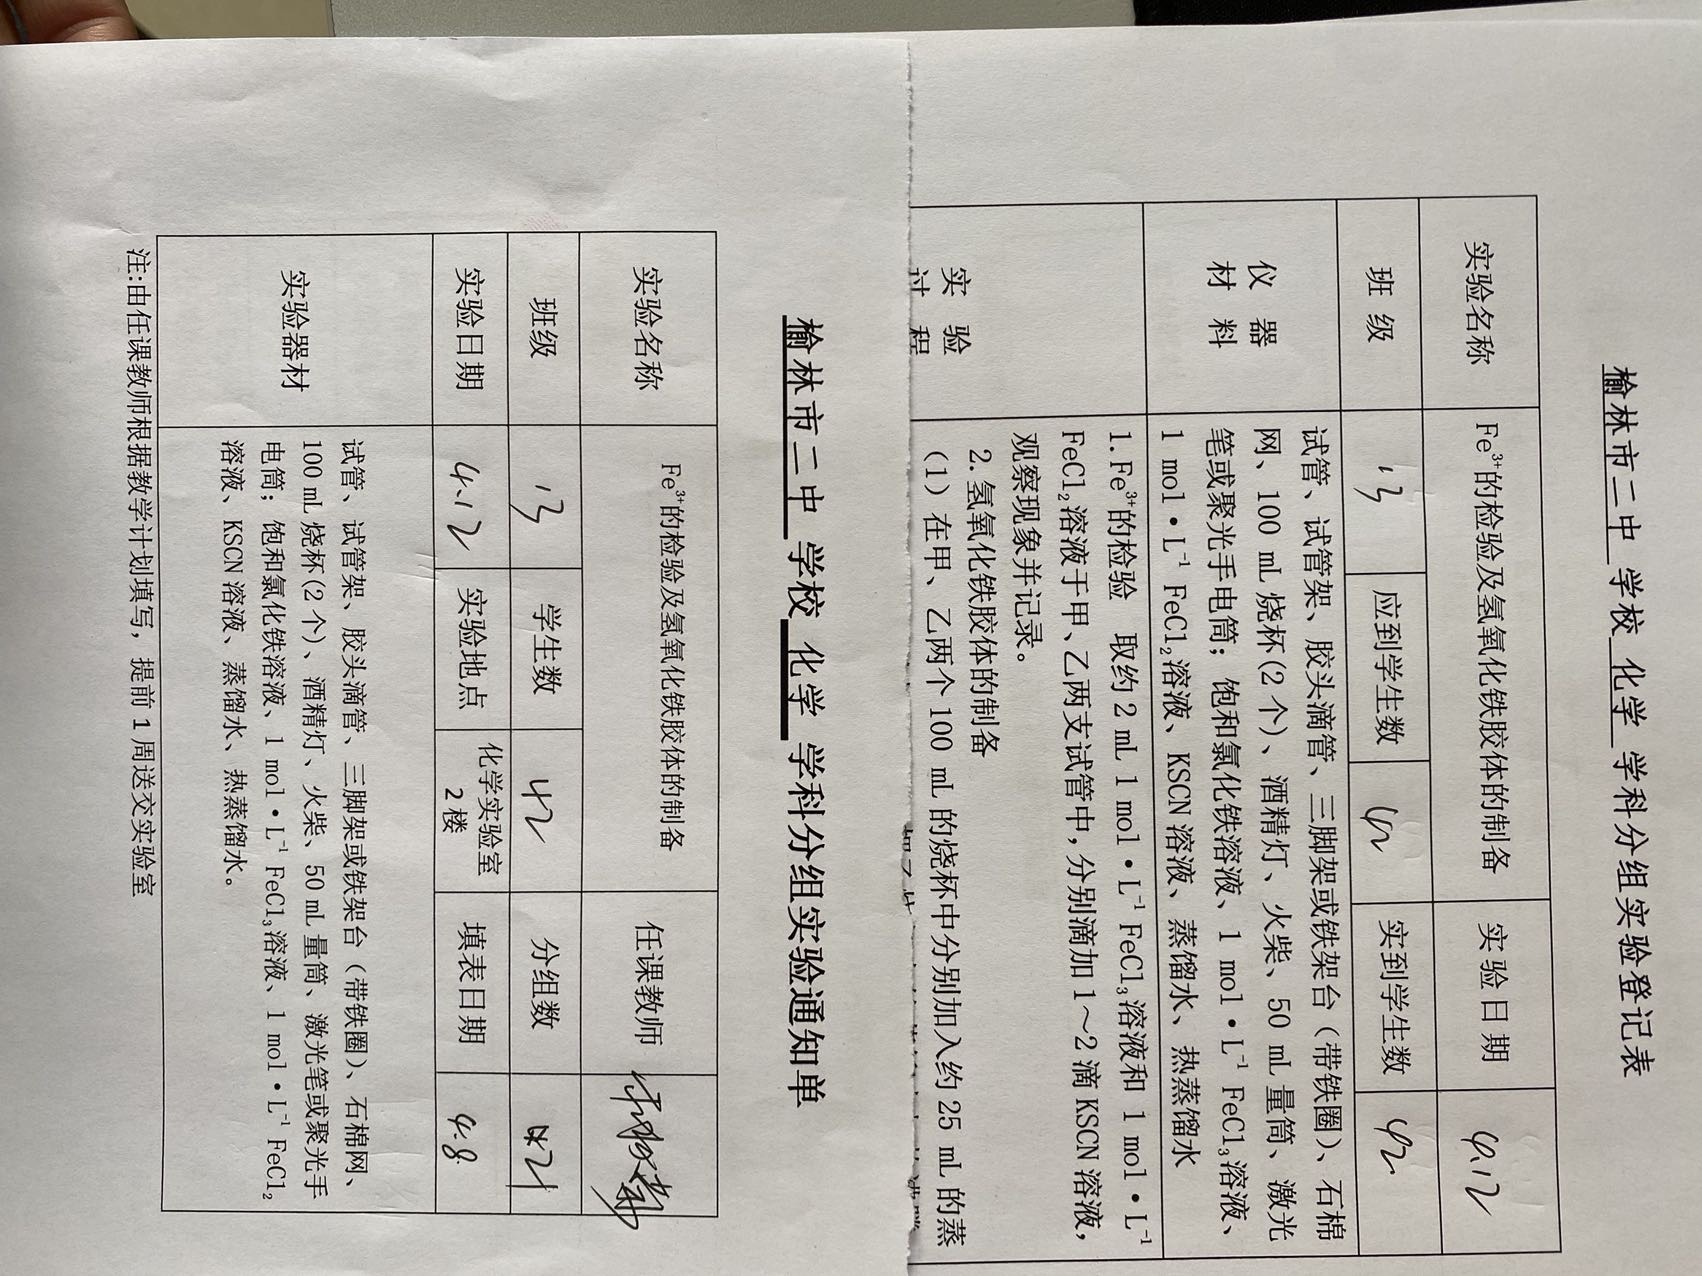 榆林市二中 学校 化学 学科分组实验登记表
实验名称 Fe³⁺的检验及氢氧化铁胶体的制备 实验日期 4.12
班级 13 应到学生数 42 实到学生数 42
仪器
材料
试管、试管架、胶头滴管、三脚架或铁架台（带铁圈）、石棉
网、100 mL 烧杯(2 个)、酒精灯、火柴、50 mL 量筒、激光
笔或聚光手电筒；饱和氯化铁溶液、1 mol·L⁻¹ FeCl₃溶液、
1 mol·L⁻¹ FeCl₂溶液、KSCN 溶液、蒸馏水、热蒸馏水
实验
过程
1. Fe³⁺的检验 取约 2 mL 1 mol·L⁻¹ FeCl₃溶液和 1 mol·L⁻¹
FeCl₂溶液于甲、乙两支试管中，分别滴加 1～2 滴 KSCN 溶液，
观察现象并记录。
2. 氢氧化铁胶体的制备
（1）在甲、乙两个 100 mL 的烧杯中分别加入约 25 mL 的蒸
榆林市二中 学校 化学 学科分组实验通知单
实验名称 Fe³⁺的检验及氢氧化铁胶体的制备 任课教师
班级 13 学生数 42 分组数 21
实验日期 4.12 实验地点 化学实验室
2 楼 填表日期 4.8
实验器材
试管、试管架、胶头滴管、三脚架或铁架台（带铁圈）、石棉网、
100 mL 烧杯(2 个)、酒精灯、火柴、50 mL 量筒、激光笔或聚光手
电筒；饱和氯化铁溶液、1 mol·L⁻¹ FeCl₃溶液、1 mol·L⁻¹ FeCl₂
溶液、KSCN 溶液、蒸馏水、热蒸馏水。
注:由任课教师根据教学计划填写，提前 1 周送交实验室